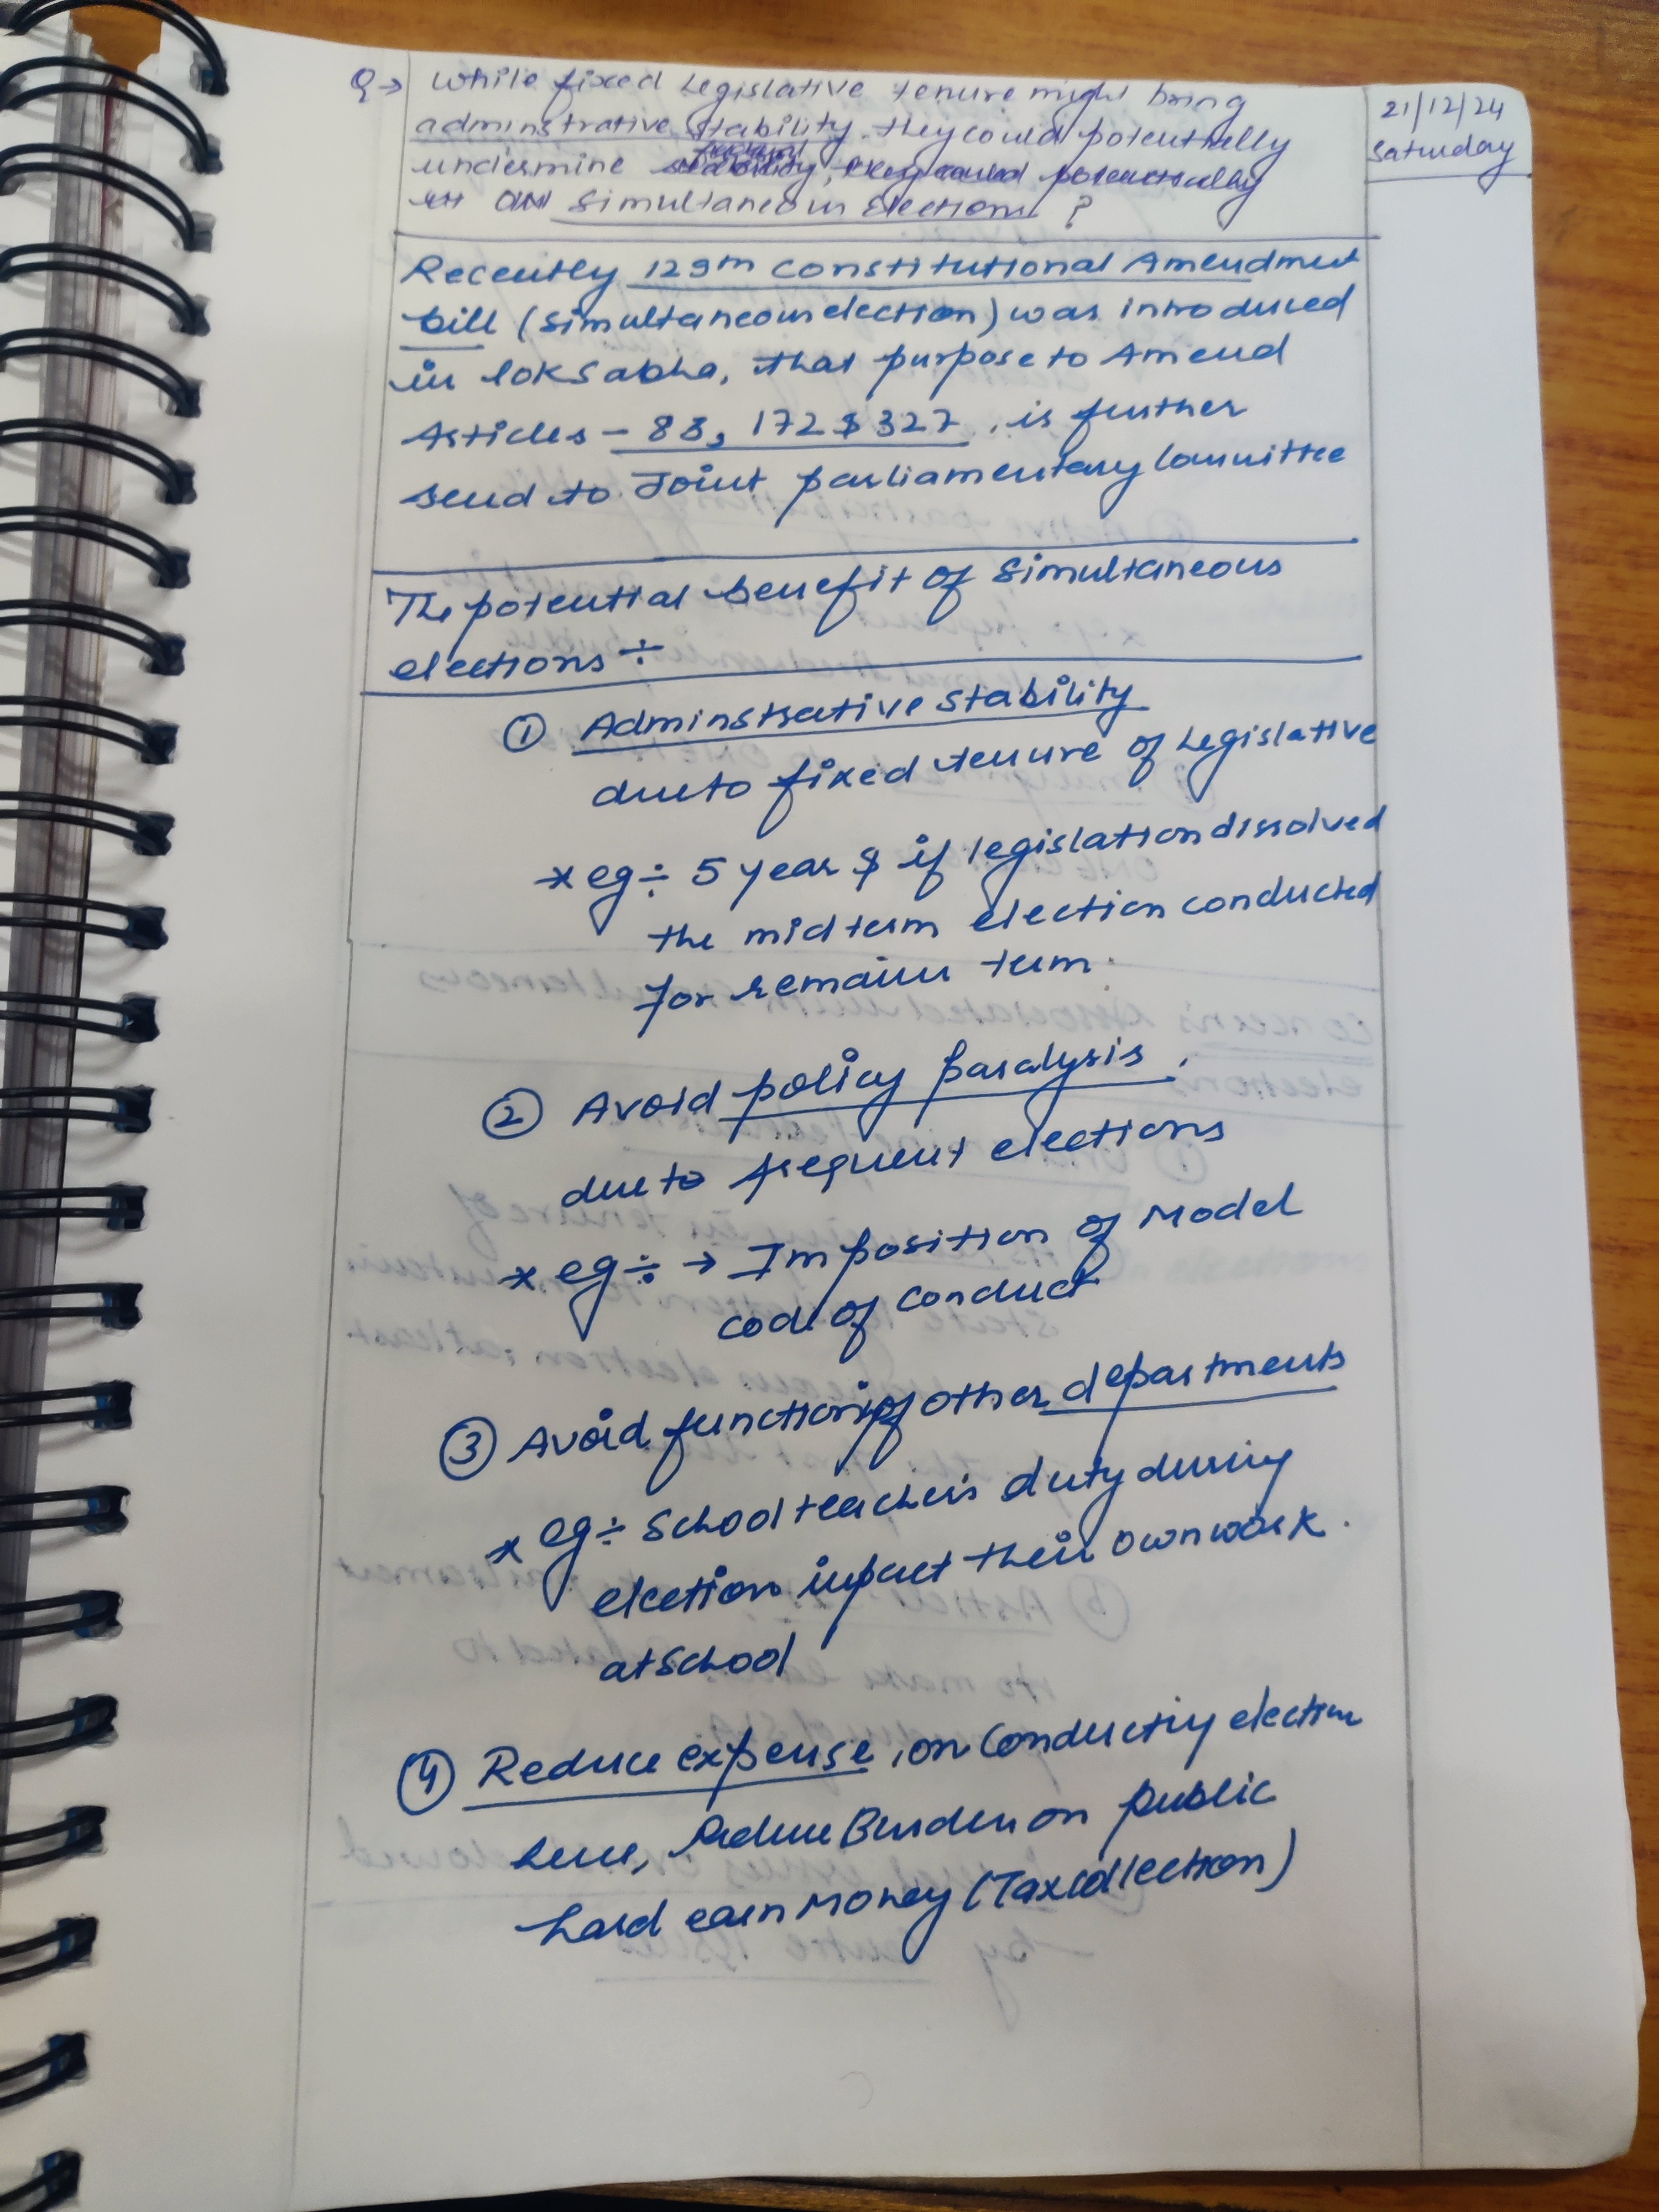 Q→ While fixed Legislative tenure might bring
adminstrative stability. they could potentially
undermine
simultaneous elections ?
21/12/24
Saturday
Recently 129th constitutional Amendment
bill (simultaneous election) was introduced
in loksabha, that purpose to Amend
Articles - 83, 172 & 327 . is further
send to Joint parliamentary Committee
The potential benefit of simultaneous
elections ÷
① Adminstrative stability
due to fixed tenure of Legislative
* eg ÷ 5 year & if legislation dissolved
the mid term election conducted
for remain term.
② Avoid policy paralysis.
due to frequent elections
* eg ÷ → Imposition of Model
code of conduct
③ Avoid function of other departments
* eg ÷ School teacher's duty during
election impact their own work.
at School
④ Reduce expense, on conducting election
hence, Reduce Burden on public
hard earn Money (Tax collection)